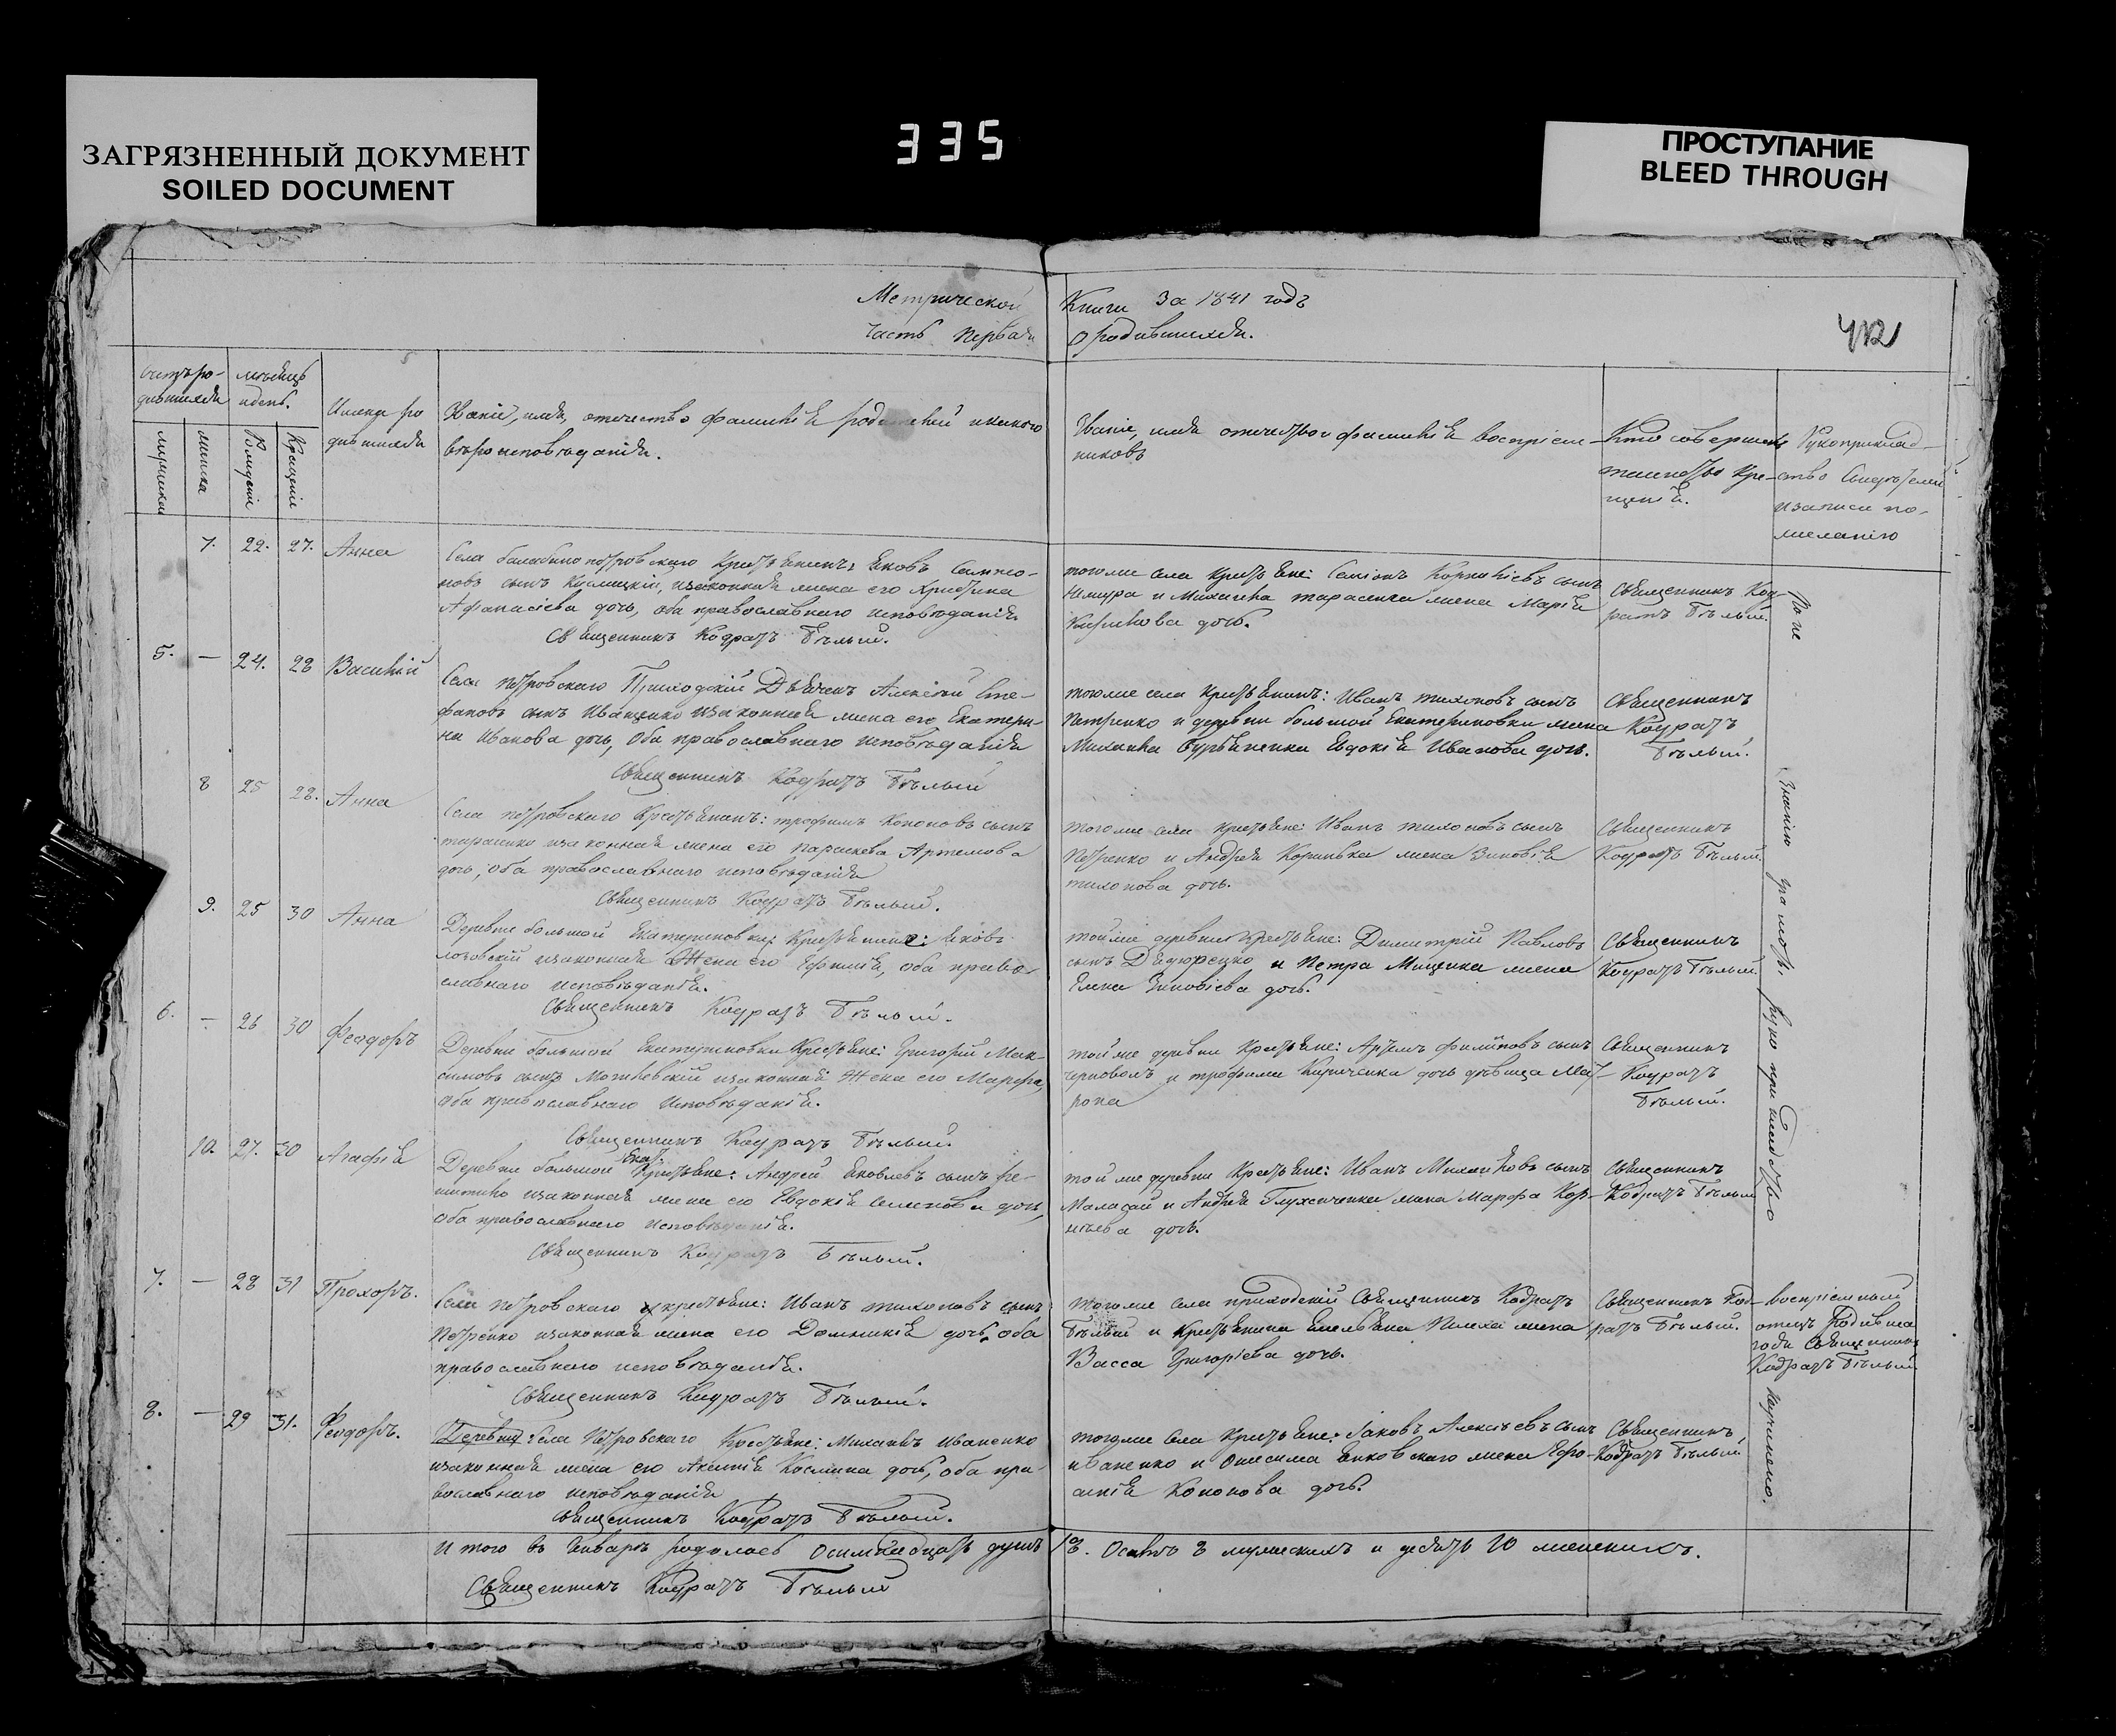 ЗАГРЯЗНЕННЫЙ ДОКУМЕНТ
SOILED DOCUMENT
335
ПРОСТУПАНИЕ
BLEED THROUGH
Метрической Книги за 1841 годъ
часть первая о родившихся.
412
Счетъ ро-
дившихся
мѣсяцъ
и день.
мужеска
женска
Рождения
Крещения
Имена ро
дившихся
Званіе, имя, отечество фамилія родителей и какого
вѣроисповѣданія.
Званіе, имя отечество и фамилія воспріем-
никовъ
Кто совершалъ
таинство Кре-
щенія.
Рукоприклад-
ство Свидѣтелей
и записи по
желанію
7. 22. 27. Анна
Села балабино петровскаго Крестьянинъ: Яковъ
новъ сынъ изаконная жена его Христина
Афанасіева дочь, оба православнаго исповѣданія.
Священникъ Кодратъ Бѣлый.
тогоже села крестьяне: Семіонъ Корниліевъ сынъ
и Михаила тарасенка жена Марія
дочь.
Священникъ Код-
ратъ Бѣлый.
5. — 24. 28 Василій
Села петровскаго Приходскій Дьячокъ Алексѣй Сте-
фановъ сынъ Иващенко изаконная жена его Екатери-
на Иванова дочь, Оба православнаго исповѣданія
Священникъ Кодратъ Бѣлый
тогоже села крестьянинъ: Иванъ тихоновъ сынъ
Петренко и деревни большой Екатериновки жена
Михаила Евдокія Иванова дочь.
Священникъ
Кодратъ
Бѣлый.
8 25 28. Анна
Села петровскаго Крестьянинъ: трофимъ Кононовъ сынъ
тарасенко изаконная жена его параскева Артемова
дочь, оба православнаго исповѣданія
Священникъ Кодратъ Бѣлый.
тогоже села крестьяне: Иванъ тихоновъ сынъ
Петренко и Андрея жена Зиновія
тихонова дочь.
Священникъ
Кодратъ Бѣлый
9. 25 30 Анна
Деревни большой Екатериновки Крестьяне: Яковъ
изаконная Жена его Ефимія, оба право-
славнаго исповѣданія.
Священникъ Кодратъ Бѣлый.
тойже деревни крестьяне: Димитрій Павловъ
сынъ и Петра Мищенка жена
Елена Зиновіева дочь.
Священникъ
Кодратъ Бѣлый.
6. — 26 30 Феодоръ
Деревни большой Екатериновки Крестьяне: Григорій Мак-
симовъ сынъ изаконная Жена его Марфа,
оба православнаго исповѣданія.
Священникъ Кодратъ Бѣлый.
тойже деревни Крестьяне: Артемъ филиповъ сынъ
и трофима Кириченка дочь дѣвица Мат-
рона
Священникъ
Кодратъ
Бѣлый.
10. 27. 30 Агафія
Деревни большой Екат. Крестьяне: Андрей Яковлевъ сынъ
изаконная жена его Евдокія Семенова дочь,
оба православнаго исповѣданія.
Священникъ Кодратъ Бѣлый.
той же деревни Крестьяне: Иванъ Михайловъ сынъ
и Андрея жена Марфа Кор-
нѣева дочь.
Священникъ
Кодратъ Бѣлый
7. — 28 31 Прохоръ.
Села петровскаго крестьяне: Иванъ тихоновъ сынъ
Петренко изаконная жена его Домникія дочь, оба
православнаго исповѣданія.
Священникъ Кодратъ Бѣлый.
тогоже села приходскій Священникъ Кодратъ
Бѣлый и Крестьянина жена
Васса Григоріева дочь.
Священникъ Код-
ратъ Бѣлый.
воспріемный
отецъ Родивша
гося Священникъ
Кодратъ Бѣлый
8. — 29 31. Феодоръ.
Деревни Села Петровскаго Крестьяне: Михаилъ Иваненко
изаконная жена его Аксинія Космина дочь, оба пра-
вославнаго исповѣданія
Священникъ Кодратъ Бѣлый.
тогоже села крестьяне: Іаковъ Алексѣевъ сынъ
иваненко и Онисима жена Ефро-
синія Кононова дочь.
Священникъ
Кодратъ Бѣлый
По не знанію грамотѣ рукоприкладство
Итого въ Январѣ родилось Осимнадцать душъ 18. Осимъ 8 мужескихъ и десять 10 женскихъ.
Священникъ Кодратъ Бѣлый